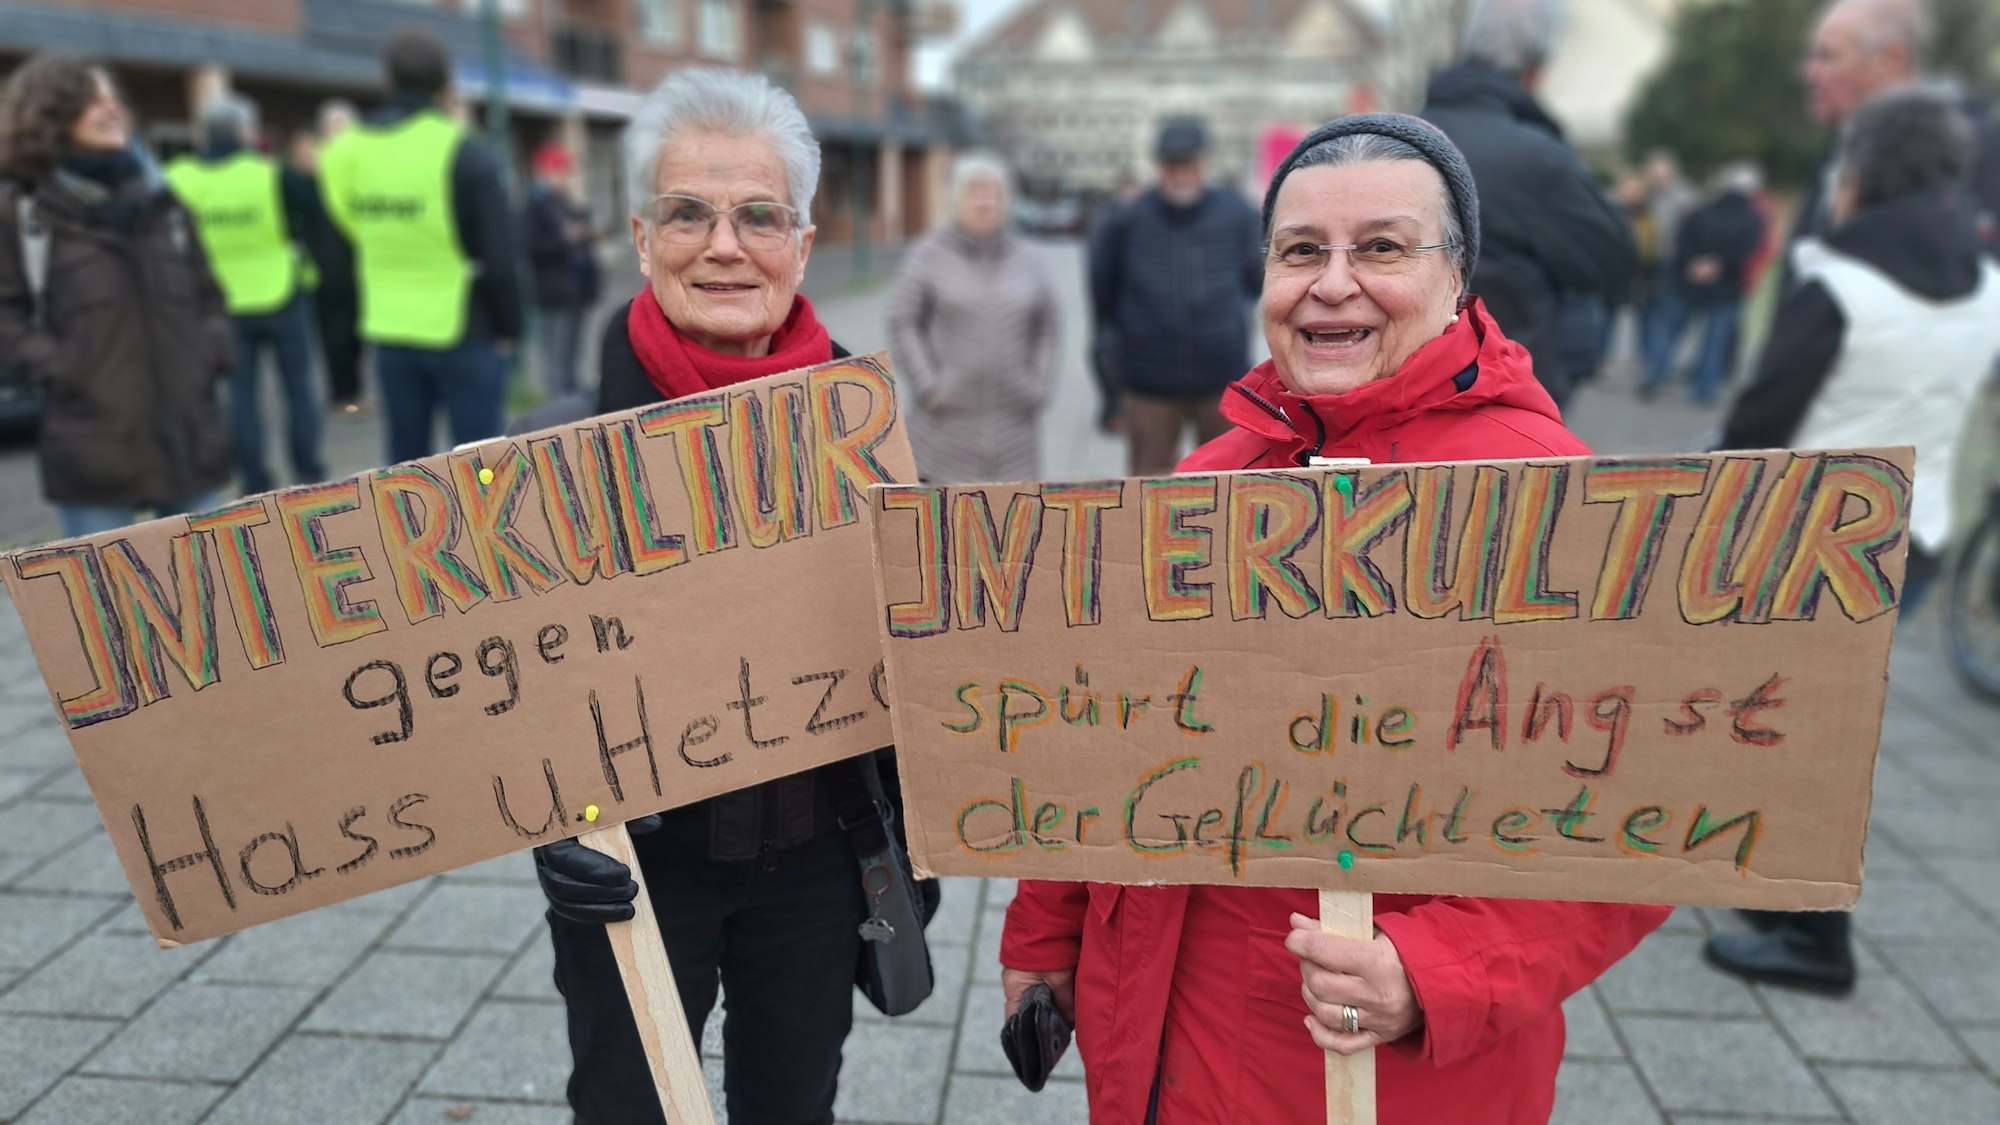 INTERKULTUR
gegen
Hass u. Hetze
INTERKULTUR
spürt die Angst
der Geflüchteten